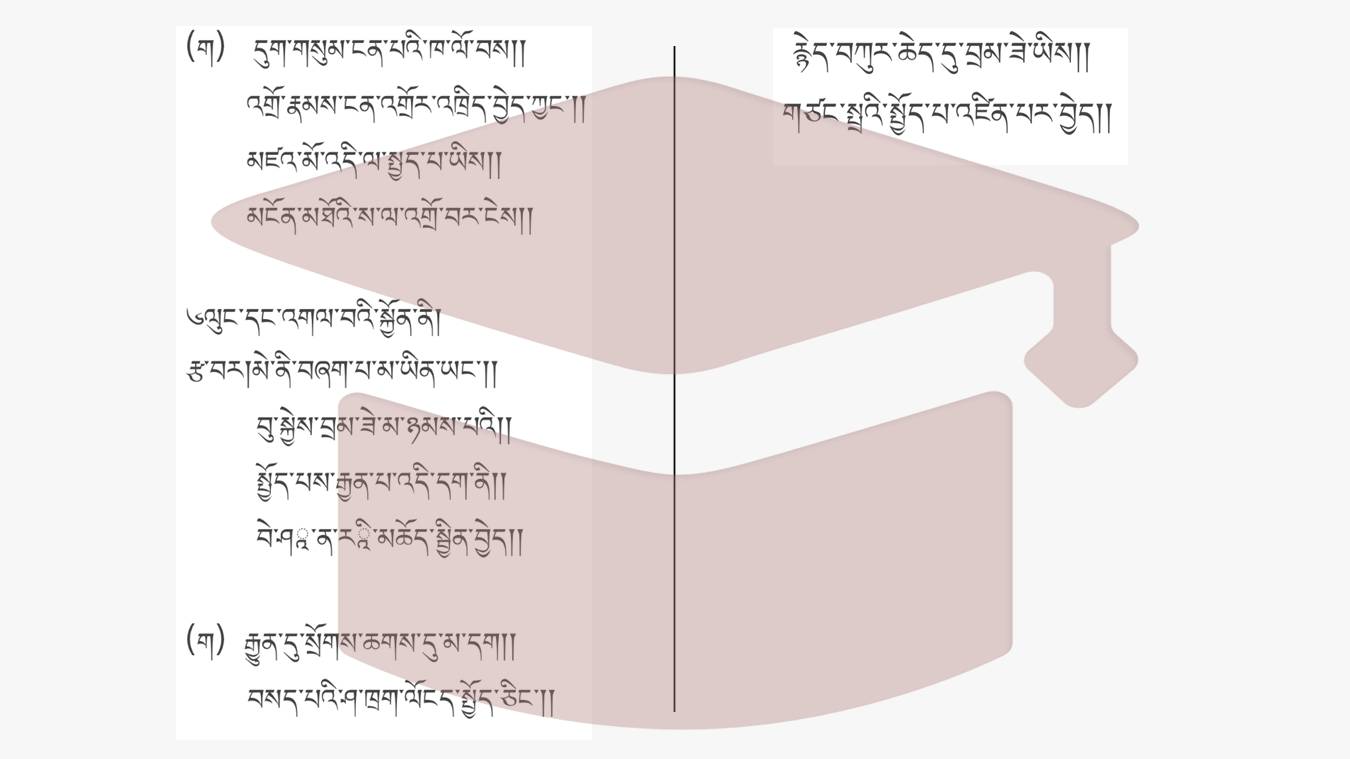 (ག) དུག་གསུམ་ངན་པའི་ཁ་ལོ་བས།།
འགྲོ་རྣམས་ངན་འགྲོར་འཁྲིད་བྱེད་ཀྱང་།།
མཛའ་མོ་འདི་ལ་སྤྱད་པ་ཡིས།།
མངོན་མཐོའི་ས་ལ་འགྲོ་བར་ངེས།།
༦ལུང་དང་འགལ་བའི་སྐྱོན་ནི།
རྩ་བར།མེ་ནི་བཞག་པ་མ་ཡིན་ཡང་།།
བུ་སྐྱེས་བྲམ་ཟེ་མ་ཉམས་པའི།།
སྤྱོད་པས་རྒྱན་པ་འདི་དག་ནི།།
བེ་ཤ་ན་ར་མཆོད་སྦྱིན་བྱེད།།
(ག) རྒྱུན་དུ་སྲོགས་ཆགས་དུ་མ་དག།།
བསད་པའི་ཤ་ཁྲག་ལོངད་སྤྱོད་ཅིང་།།
རྙེད་བཀུར་ཆེད་དུ་བྲམ་ཟེ་ཡིས།།
གཙང་སྦྲའི་སྤྱོད་པ་འཛིན་པར་བྱེད།།